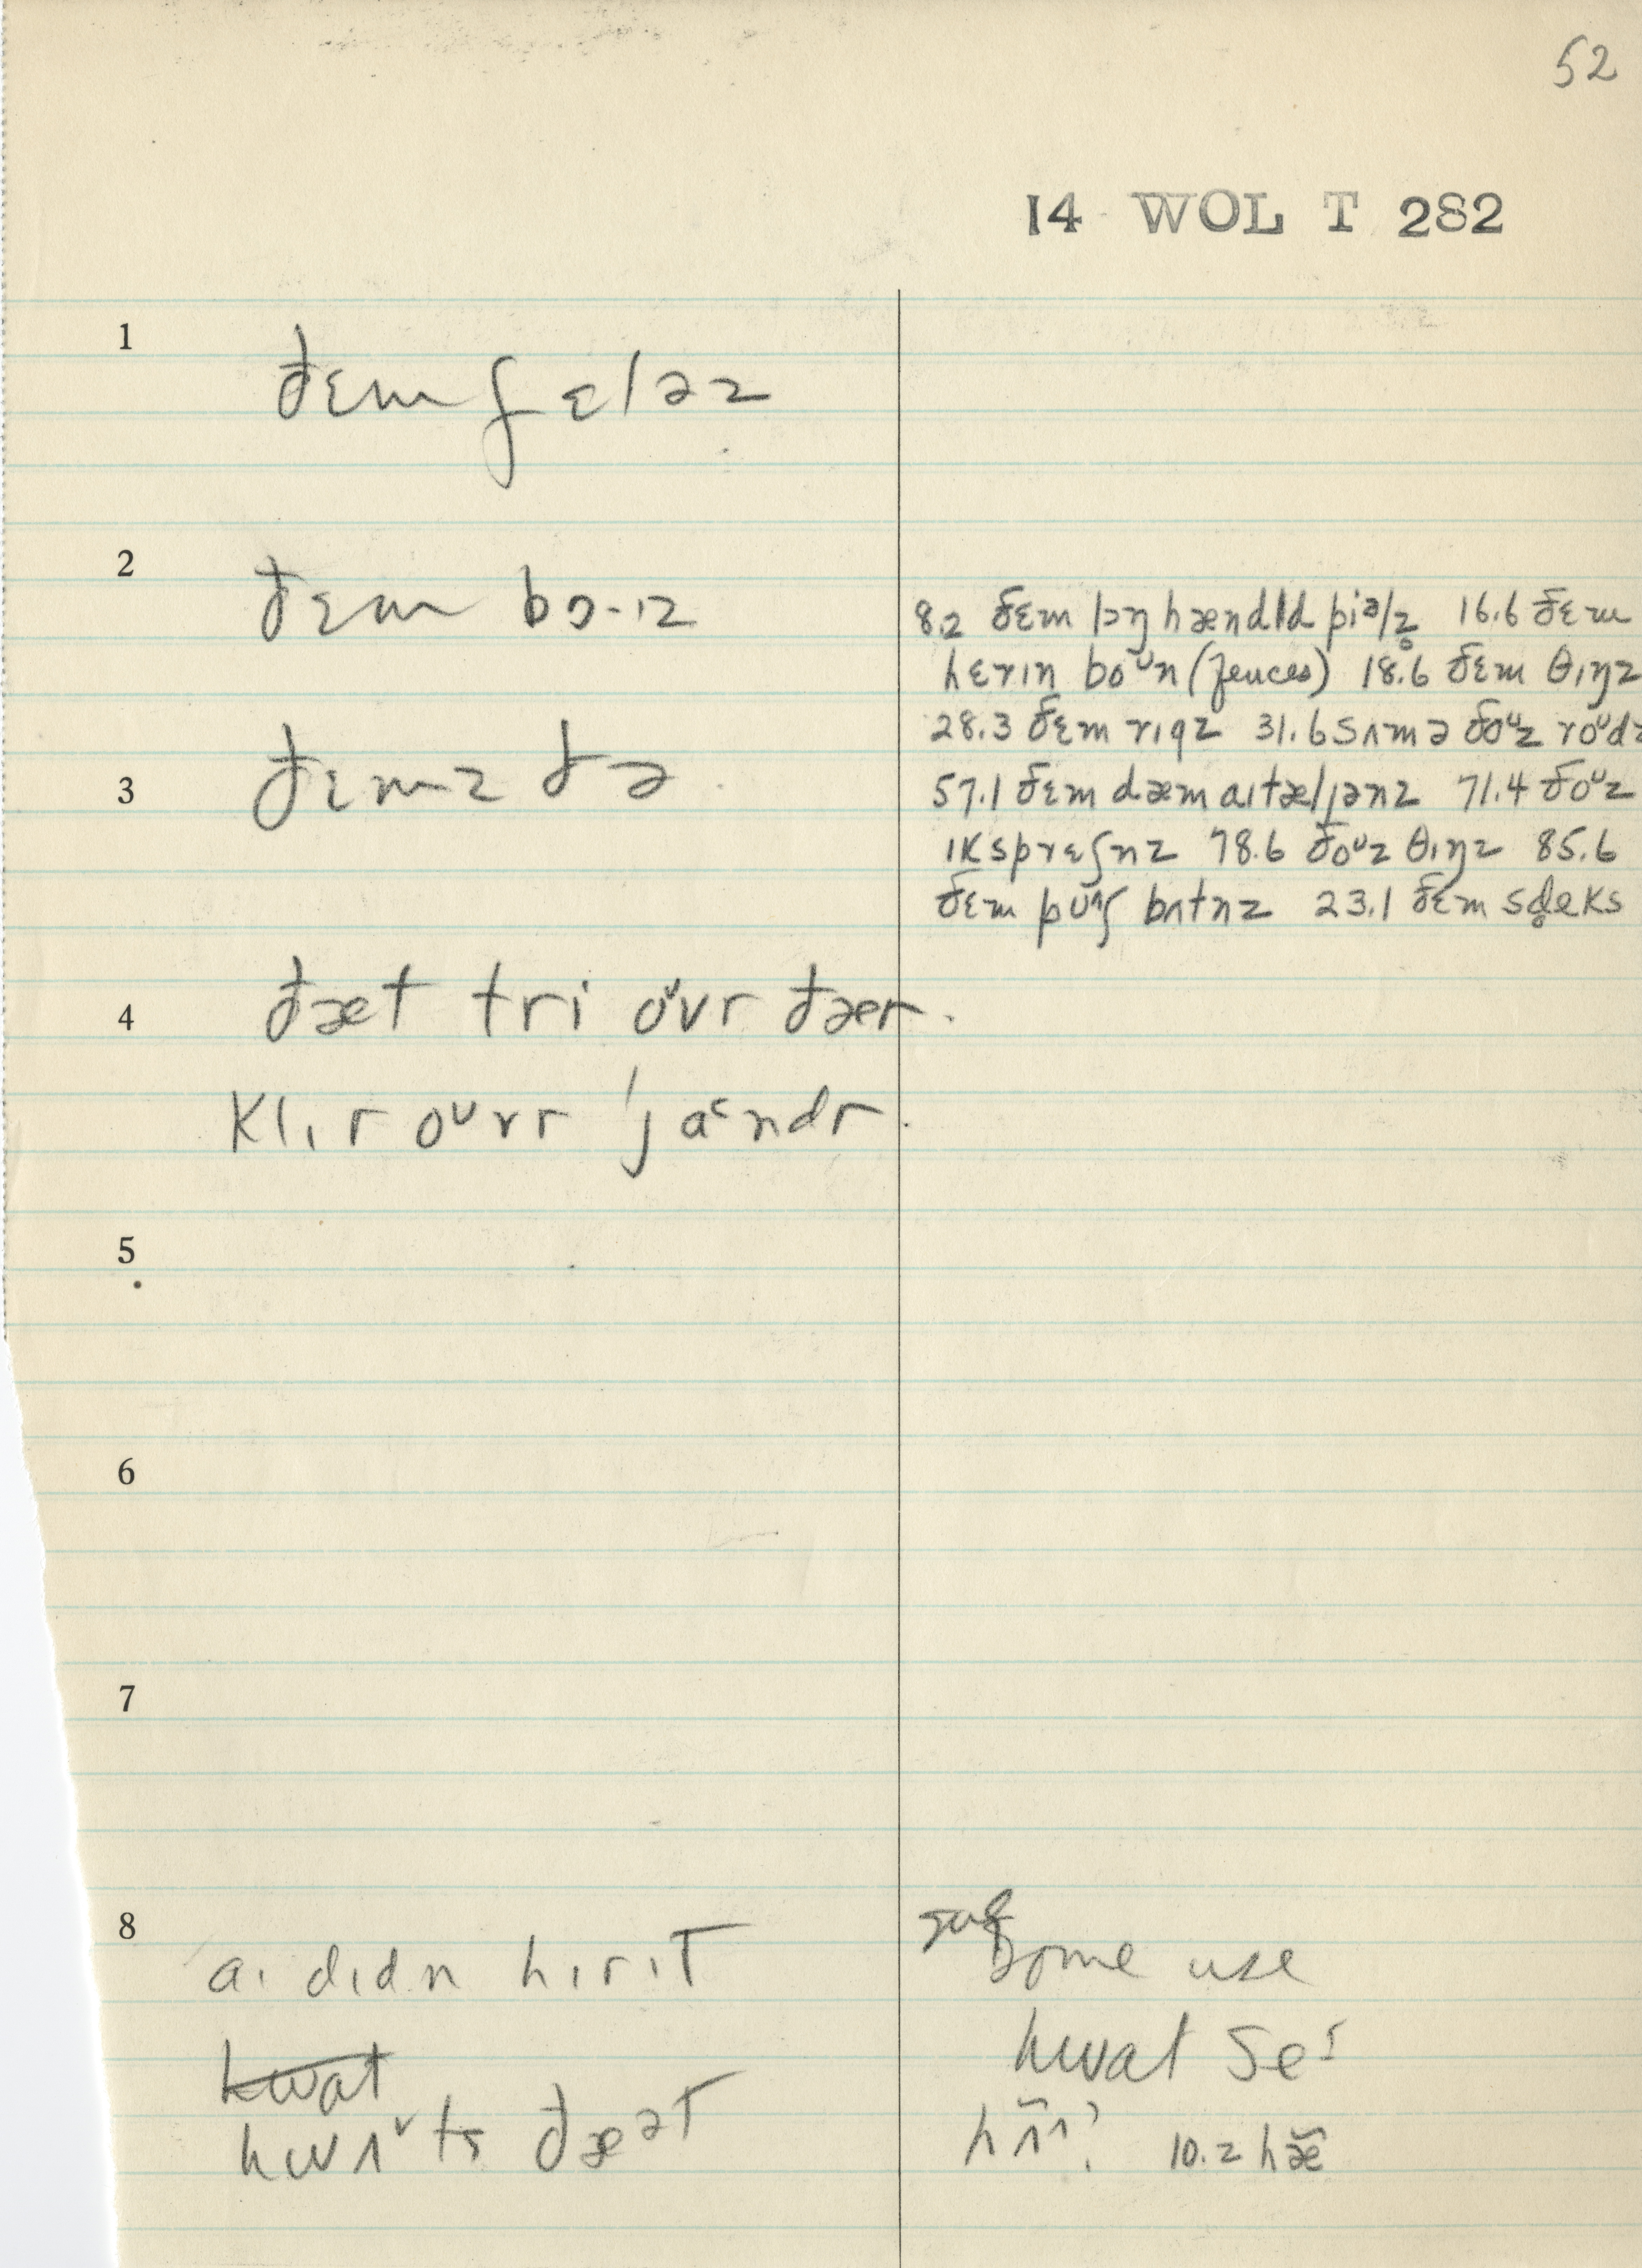 52
14 WOL T 282
1
ðɛm fɛləz
2
ðɛm bɔ·ɪz
8.2 ðɛm lɔŋ hændld piəlz̥ 16.6 ðɛm
hɛrɪn boᵘn (fences) 18.6 ðɛm θɪŋz
28.3 ðɛm rɪgz 31.6 sʌm ə ðoᵘz roᵘdz
3
ðɛmz ðə
57.1 ðɛm dæm aɪtæljənz 71.4 ðoᵘz
ɪksprɛʃnz 78.6 ðoᵘz θɪŋz 85.6
ðɛm pʊʃ bʌtnz 23.1 ðɛm sd̥eks
4
ðæt tri oᵛvr ðæer.
klɪr oᵘvr 'jaᵋndr.
5
6
7
8
aɪ dɪdn hɪrɪT
Some use
hwat
hwat se
hwʌᵛts ðæᵊT
hʌ̃ʌ? 10.2 hæ̃